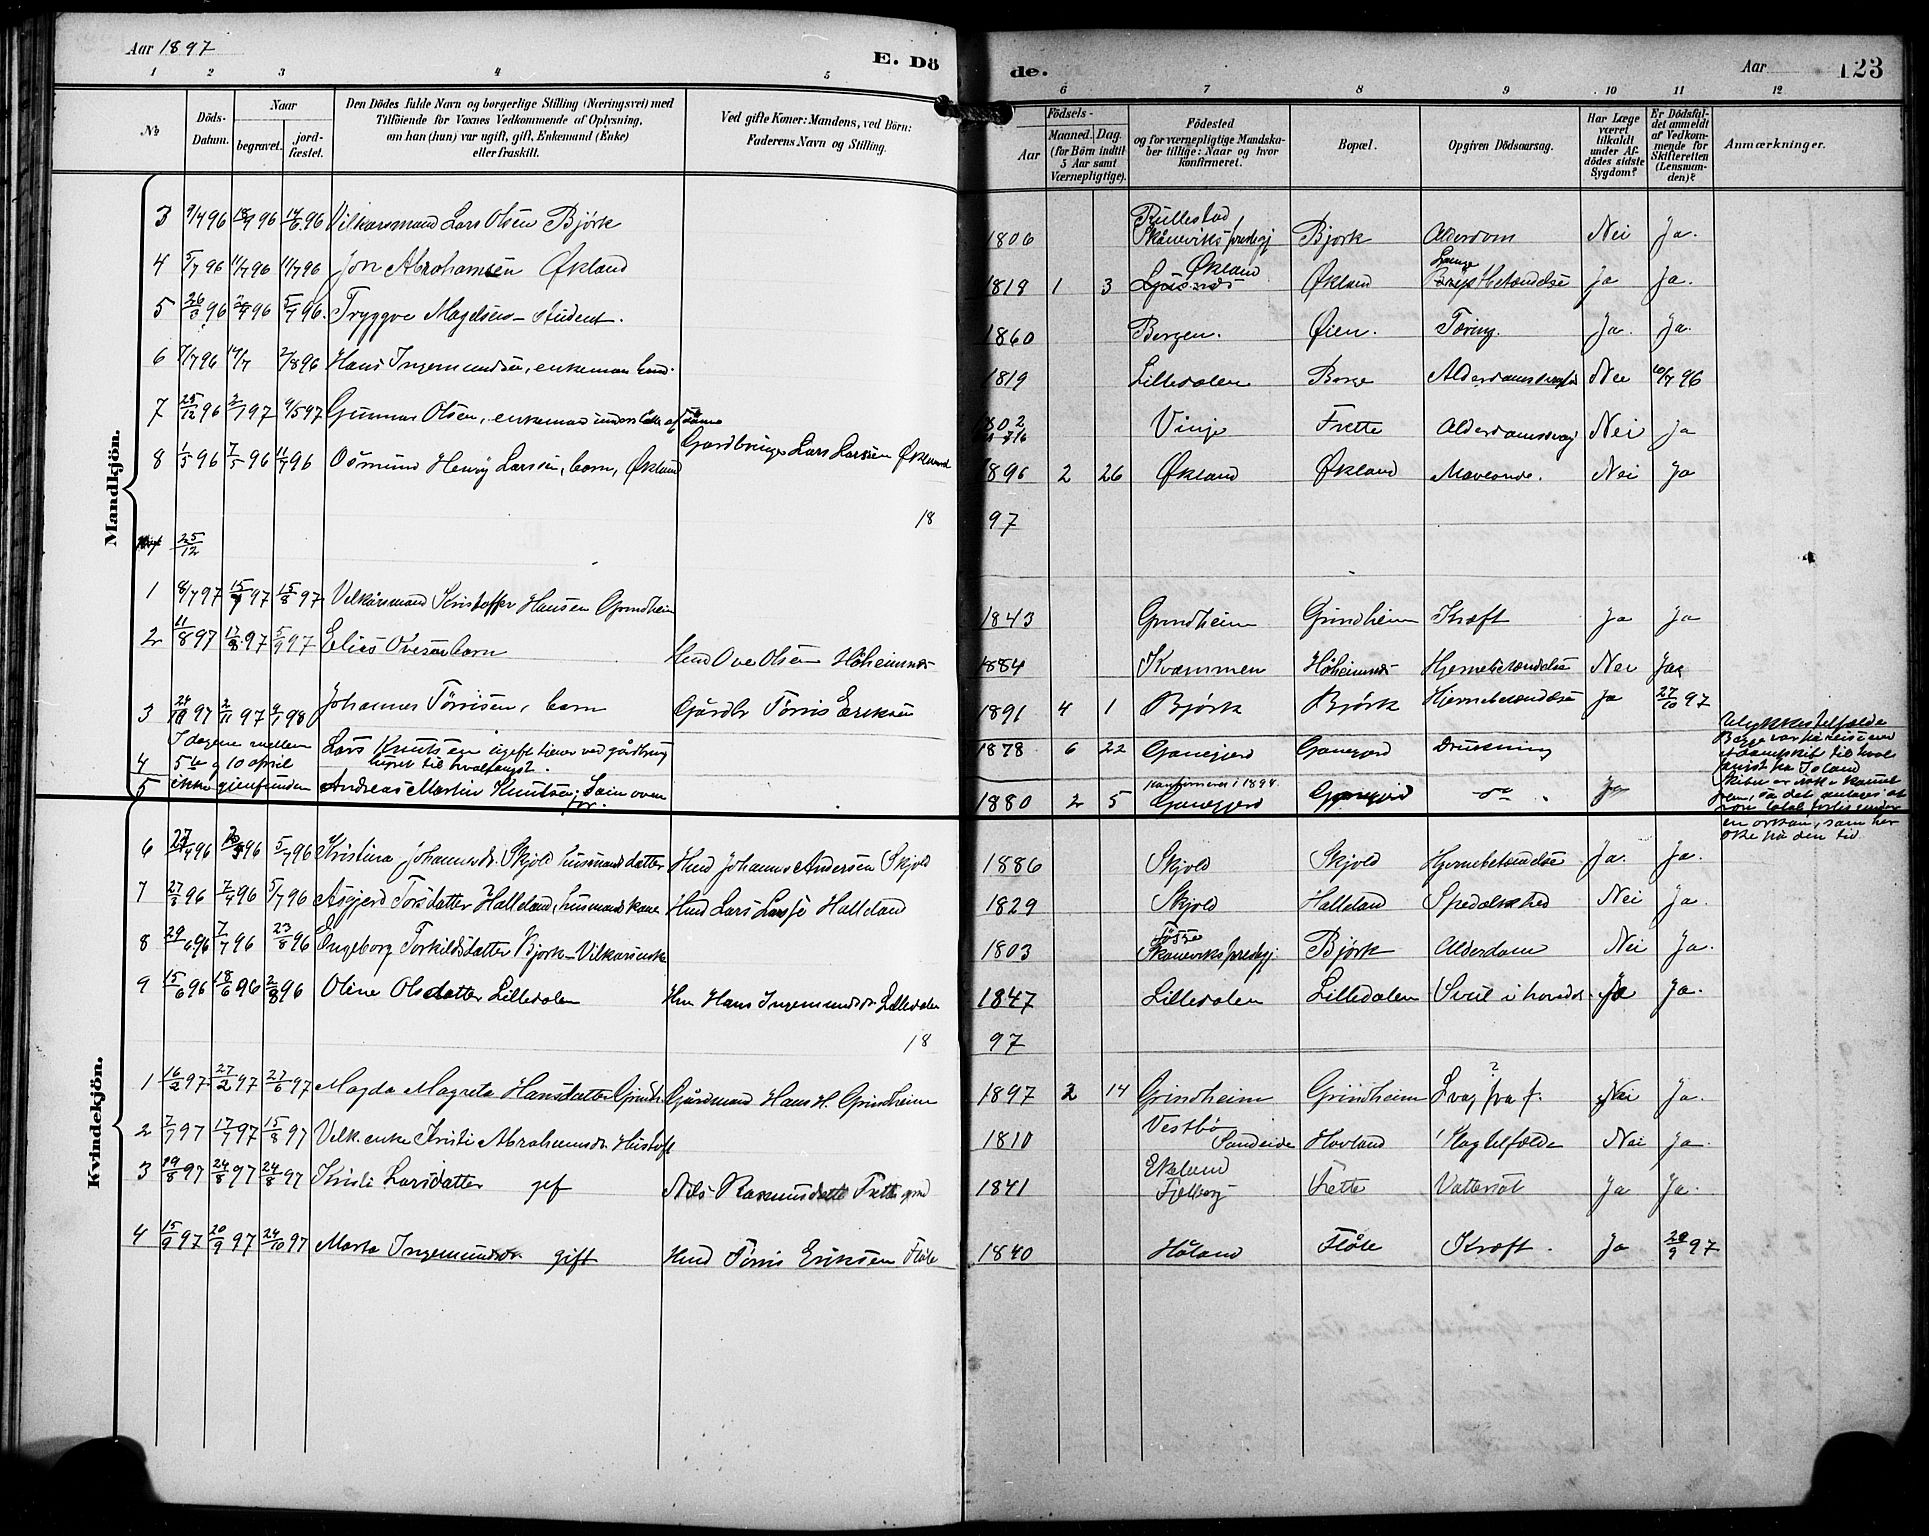 Aar 1897
E. Dö
de.
Aar
123
1 2 3 4 5
6 7 8 9 10 11 12
Nº
Döds-Datum.
Naar
begravet.
jord-fæstet.
Den Dödes fulde Navn og borgerlige Stilling (Næringsvei) med
Tilföiende for Voxnes Vedkommende af Oplysning,
om han (hun) var ugift, gift, Enkemand (Enke)
eller fraskilt.
Ved gifte Koner: Mandens, ved Börn:
Faderens Navn og Stilling.
Födsels-
Aar
Maaned. Dag.
(for Börn indtil
5 Aar samt
Værnepligtige).
Födested
og for værnepligtige Mandska-
ber tillige: Naar og hvor
konfirmeret.
Bopæl.
Opgiven Dödsaarsag.
Har Læge
været
tilkaldt
under Af-
dödes sidste
Sygdom?
Er Dödsful-
det anmeldt
af Vedkom-
mende for
Skifteretten
(Lensman-
den)?
Anmærkninger.
Mandkjön.
3 9/4 96 18/9 96 14/6 96 Vilkaarsmand Lars Olsen Bjørk 1806 Rullestad Skåneviks prestegj Bjørk Alderdom Nei Ja.
4 5/7 96 11/7 96 11/7 96 Jon Abrahamsen Økland 1819 1 3 Økland Økland Lunge betændelse Ja Ja.
5 26/3 96 5/7 96. Tryggve Magelsen - student. 1860 Bergen. Øien. Tæring. Ja. Ja.
6 7/7 96 14/7 2/8 96 Hans Ingemundsen, enkeman 1819 Lilledalen Borge Alderdomssvag Nei 10/7 96
7 25/12 96 2/1 97 9/5 97 Gunnar Olsen, enkeman understøtte af 1802 Vinje Frette Alderdomssvag Nei Ja
8 1/5 96 7/5 96 11/7 96 Osmund Henrÿ Larsen, barn, Økland Gardbruger Lars Larsen Økland 1896 2 26 Økland Økland Maveonde. Nei Ja
18 97
25/12
1 8/7 97 15/7 97 15/8 97 Velkårsmand Kristoffer Hansen Grindheim 1843 Grindheim Grindheim Kræft Ja Ja
2 11/8 97 17/8 97 5/9 97 Elias Ovesen barn Husmd Ove Olsen Høheimsnes 1884 Kvammen Høheimsnes Hjernebetændelse Nei Ja
3 24/10 97 2/11 97 9/1 98 Johannes Tørrisen, barn Gårdbr Tørris Eriksen 1891 4 1 Bjørk Bjørk Hjernebetændelse Ja 27/10 97
4 I dagene mellem 5te og 10 april Lars Knutsen ugift lever ved gårdbrug
reiset til hvalfangst. 1878 6 22 Ganegjerd Ganegjerd Drukning
5 ikke gjenfunden Andreas Martin Knutsen; Som oven for. Konfirmeret i 1894. 1880 2 5 Ganegjerd Ganegjerd do
Ulykkestilfælde
Begge var på reise med
et dampskib til hval
fangst på Island
en orkan, som her
øke på den tid
Kvindekjön.
6 96 5/7 96 Kristina Johannesdr. Skjold husmandsdatter Husmd Johannes Andersen Skjold 1886 Skjold Skjold Hjernebetændelse Ja. Ja.
7 27/3 96 7/4 96 5/7 96 Asgjerd Torsdatter Halleland, husmandskone Husmd Lars Larsen Halleland 1829 Skjold Halleland Spedalskhed Nei Ja.
8 29/6 96 7/7 96 23/8 96 Ingeborg Torkildsdatter Bjørk - Vilkårsenke 1803 Skåneviks prestegj. Bjørk Alderdom Nei Ja.
9 15/6 96 18/6 96 2/8 96 Oline Olsdatter Lilledalen Hm Hans Ingemundsen Lilledalen 1847 Lilledalen Lilledalen Svul i hovedet Ja Ja.
18 97
1 16/2 97 27/2 97 27/6 97 Magda Magreta Hansdatter Grindh Gårdmand Hans H. Grindheim 1897 2 14 Grindheim Grindheim Svag fra f. ? Nei Ja.
2 7/7 97 17/7 97 15/8 97 Velk. enke Kristi Abrahamsdr. Hustoft 1810 Vestbø Sandeide Hovland Slagtilfælde Nei Ja.
3 19/8 97 24/8 97 24/8 97 Kristi Larsdatter gift Nils Rasmus Frette gmd 1841 Ekeland Fjelberg Frette Vattersot Ja Ja.
4 15/9 97 20/9 97 24/10 97 Marta Ingemundsdr. gift Husmd Tørris Eriksen Fløte 1840 Håland Fløte Kræft. Ja 20/9 97